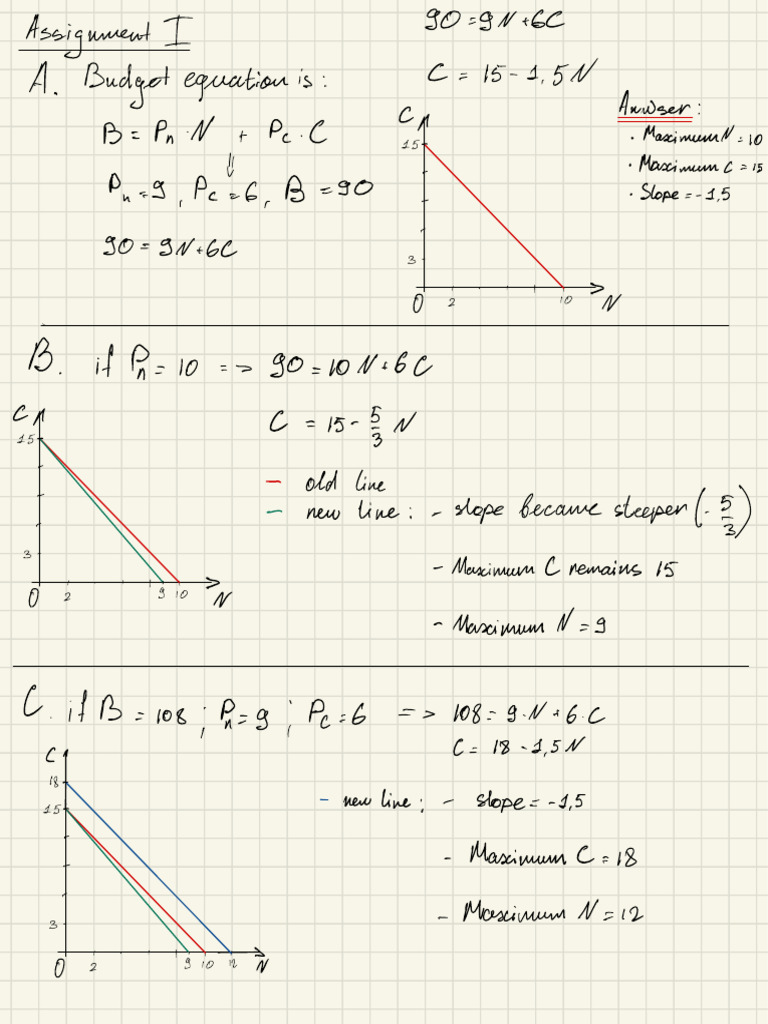 Assignment I
A. Budget equation is:
B = Pn · N + Pc · C
⇓
Pn = 9, Pc = 6, B = 90
90 = 9N + 6C
90 = 9N + 6C
C = 15 - 1,5N
C
15
3
0 2 10 N
Anwser:
· Maximum N = 10
· Maximum C = 15
· Slope = -1,5
B. if Pn = 10 => 90 = 10N + 6C
C = 15 - 5/3 N
C
15
3
0 2 9 10 N
- old line
- new line: - slope became steeper (-5/3)
- Maximum C remains 15
- Maximum N = 9
C. if B = 108 ; Pn = 9 ; Pc = 6 => 108 = 9·N + 6·C
C = 18 - 1,5N
C
18
15
3
0 2 9 10 12 N
- new line: - slope = -1,5
- Maximum C = 18
- Maximum N = 12